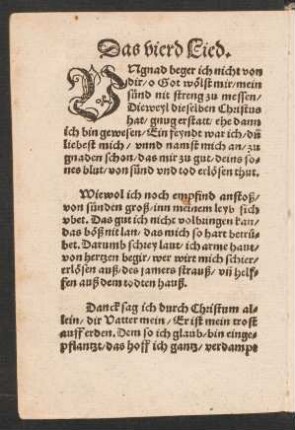 Das vierd Lied.
VNgnad beger ich nicht von
dir/ o Got wölst mir/ mein
sünd nit streng zu messen/
Dieweyl dieselben Christus
hat/ gnug erstatt/ ehe dann
ich bin gewesen/ Ein feyndt war ich/ dū
liebest mich/ vnnd namst mich an/ zu
gnaden schon/ das mir zu gut/ deins so-
nes blut/ von sünd vnd tod erlösen thut.
Wiewol ich noch empfind anstoß/
von sünden groß/ inn meinem leyb sich
vbet. Das gut ich nicht volbringen kan/
das böß nit lan/ das mich so hart betrü-
bet. Darumb schrey laut/ ich arme haut/
von hertzen begir/ wer wirt mich schier
erlösen auß/ des jamers strauß/ vn̄ helf-
fen auß dem todten hauß.
Danck sag ich durch Christum al-
lein/ dir Vatter mein/ Er ist mein trost
auff erden. Dem so ich glaub/ bin einge-
pflantzt/ das hoff ich gantz/ verdampt